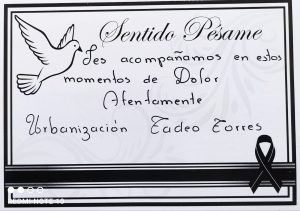 Sentido Pésame
Les acompañamos en estos
momentos de Dolor
Atentamente
Urbanización Tadeo Torres
REDMI NOTE 10